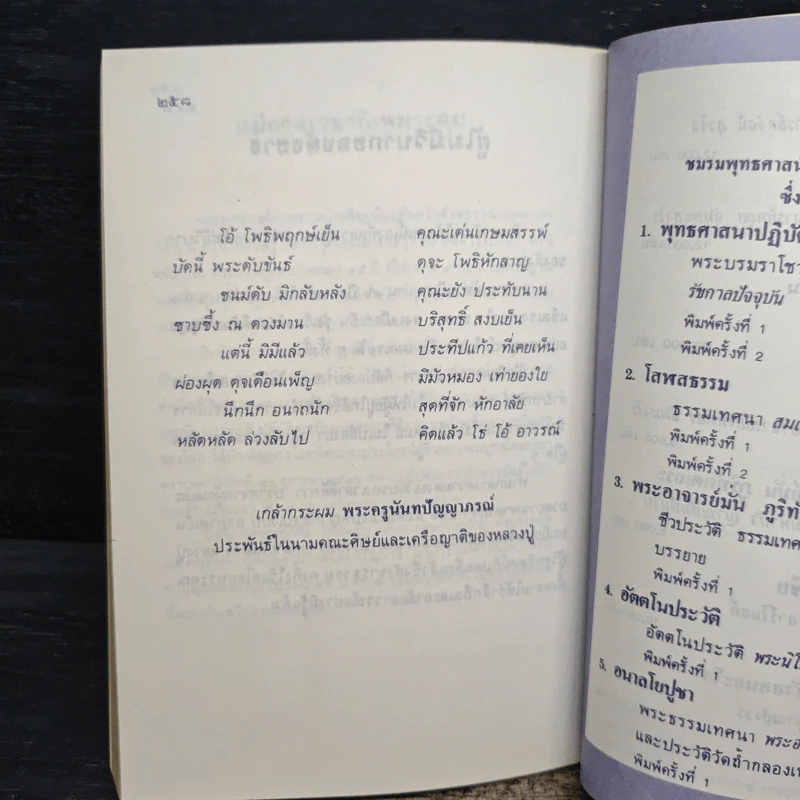 ๒๕๘
โอ้ โพธิพฤกษ์เย็น คุณะเด่นเกษมสรรพ์
บัดนี้ พระดับขันธ์ ดุจะ โพธิหักลาญ
ชนม์ดับ มิกลับหลัง คุณะยัง ประทับนาน
ซาบซึ้ง ณ ดวงมาน บริสุทธิ์ สงบเย็น
แต่นี้ มิมีแล้ว ประทีปแก้ว ที่เคยเห็น
ผ่องผุด ดุจเดือนเพ็ญ มิมัวหมอง เท่ายองใย
นึกนึก อนาถนัก สุดที่จัก หักอาลัย
หลัดหลัด ล่วงลับไป คิดแล้ว โธ่ โอ้ อาวรณ์
เกล้ากระผม พระครูนันทปัญญาภรณ์
ประพันธ์ในนามคณะศิษย์และเครือญาติของหลวงปู่
ชมรมพุทธศาสน
ซึ่ง
1. พุทธศาสนาปฏิบัติ
พระบรมราโชวา
รัชกาลปัจจุบัน
พิมพ์ครั้งที่ 1
พิมพ์ครั้งที่ 2
2. โสฬสธรรม
ธรรมเทศนา สมเ
พิมพ์ครั้งที่ 1
พิมพ์ครั้งที่ 2
3. พระอาจารย์มั่น ภูริทั
ชีวประวัติ ธรรมเทศ
บรรยาย
พิมพ์ครั้งที่ 1
4. อัตตโนประวัติ
อัตตโนประวัติ พระนิโ
พิมพ์ครั้งที่ 1
5. อนาลโยปูชา
พระธรรมเทศนา พระอ
และประวัติวัดถ้ำกลองเ
พิมพ์ครั้งที่ 1